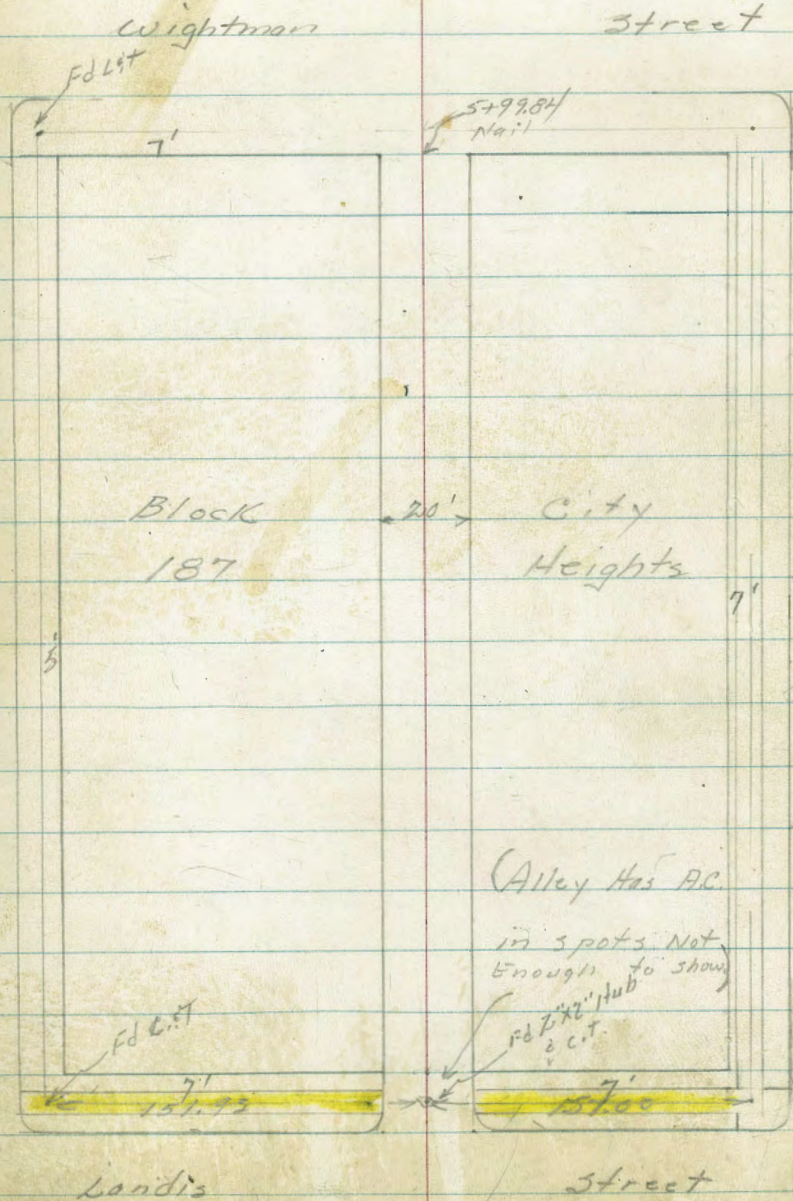 Wightman Street
Fd L&T
5+99.84
Nail
7'
Block 20' City
187 Heights
7'
5'
(Alley Has A.C.
in spots Not
Enough to show)
Fd L&T
Fd 2"x2" Hub
& C.T.
7' 7'
151.93 151.00
Landis Street